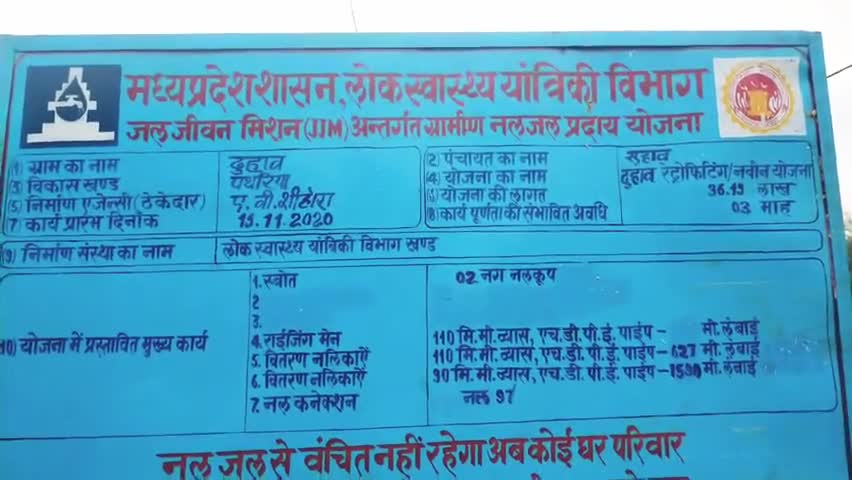 मध्यप्रदेश शासन, लोक स्वास्थ्य यांत्रिकी विभाग
जल जीवन मिशन (JJM) अन्तर्गत ग्रामीण नलजल प्रदाय योजना
(1) ग्राम का नाम दुहाव (2) पंचायत का नाम दुहाव
(3) विकास खण्ड पथरिया (4) योजना का नाम दुहाव रेट्रोफिटिंग/नवीन योजना
(5) निर्माण एजेन्सी (ठेकेदार) ए. वी. शीहोरा योजना की लागत 36.19 लाख
7 कार्य प्रारंभ दिनांक 19.11.2020 कार्य पूर्णता की संभावित अवधि 03 माह
(9) निर्माण संस्था का नाम लोक स्वास्थ्य यांत्रिकी विभाग खण्ड
1. स्त्रोत 02 नग नलकूप
2
3.
10) योजना में प्रस्तावित मुख्य कार्य 4. राईजिंग मेन 110 मि.मी. व्यास, एच.डी.पी.ई. पाईप - मी. लंबाई
5. वितरण नलिकाऐं 110 मि.मी. व्यास, एच.डी.पी.ई. पाईप - 627 मी. लंबाई
6. वितरण नलिकाऐं 90 मि.मी. व्यास, एच.डी.पी.ई. पाईप - 1590 मी. लंबाई
7. नल कनेक्शन नल 97
नल जल से वंचित नहीं रहेगा अब कोई घर परिवार